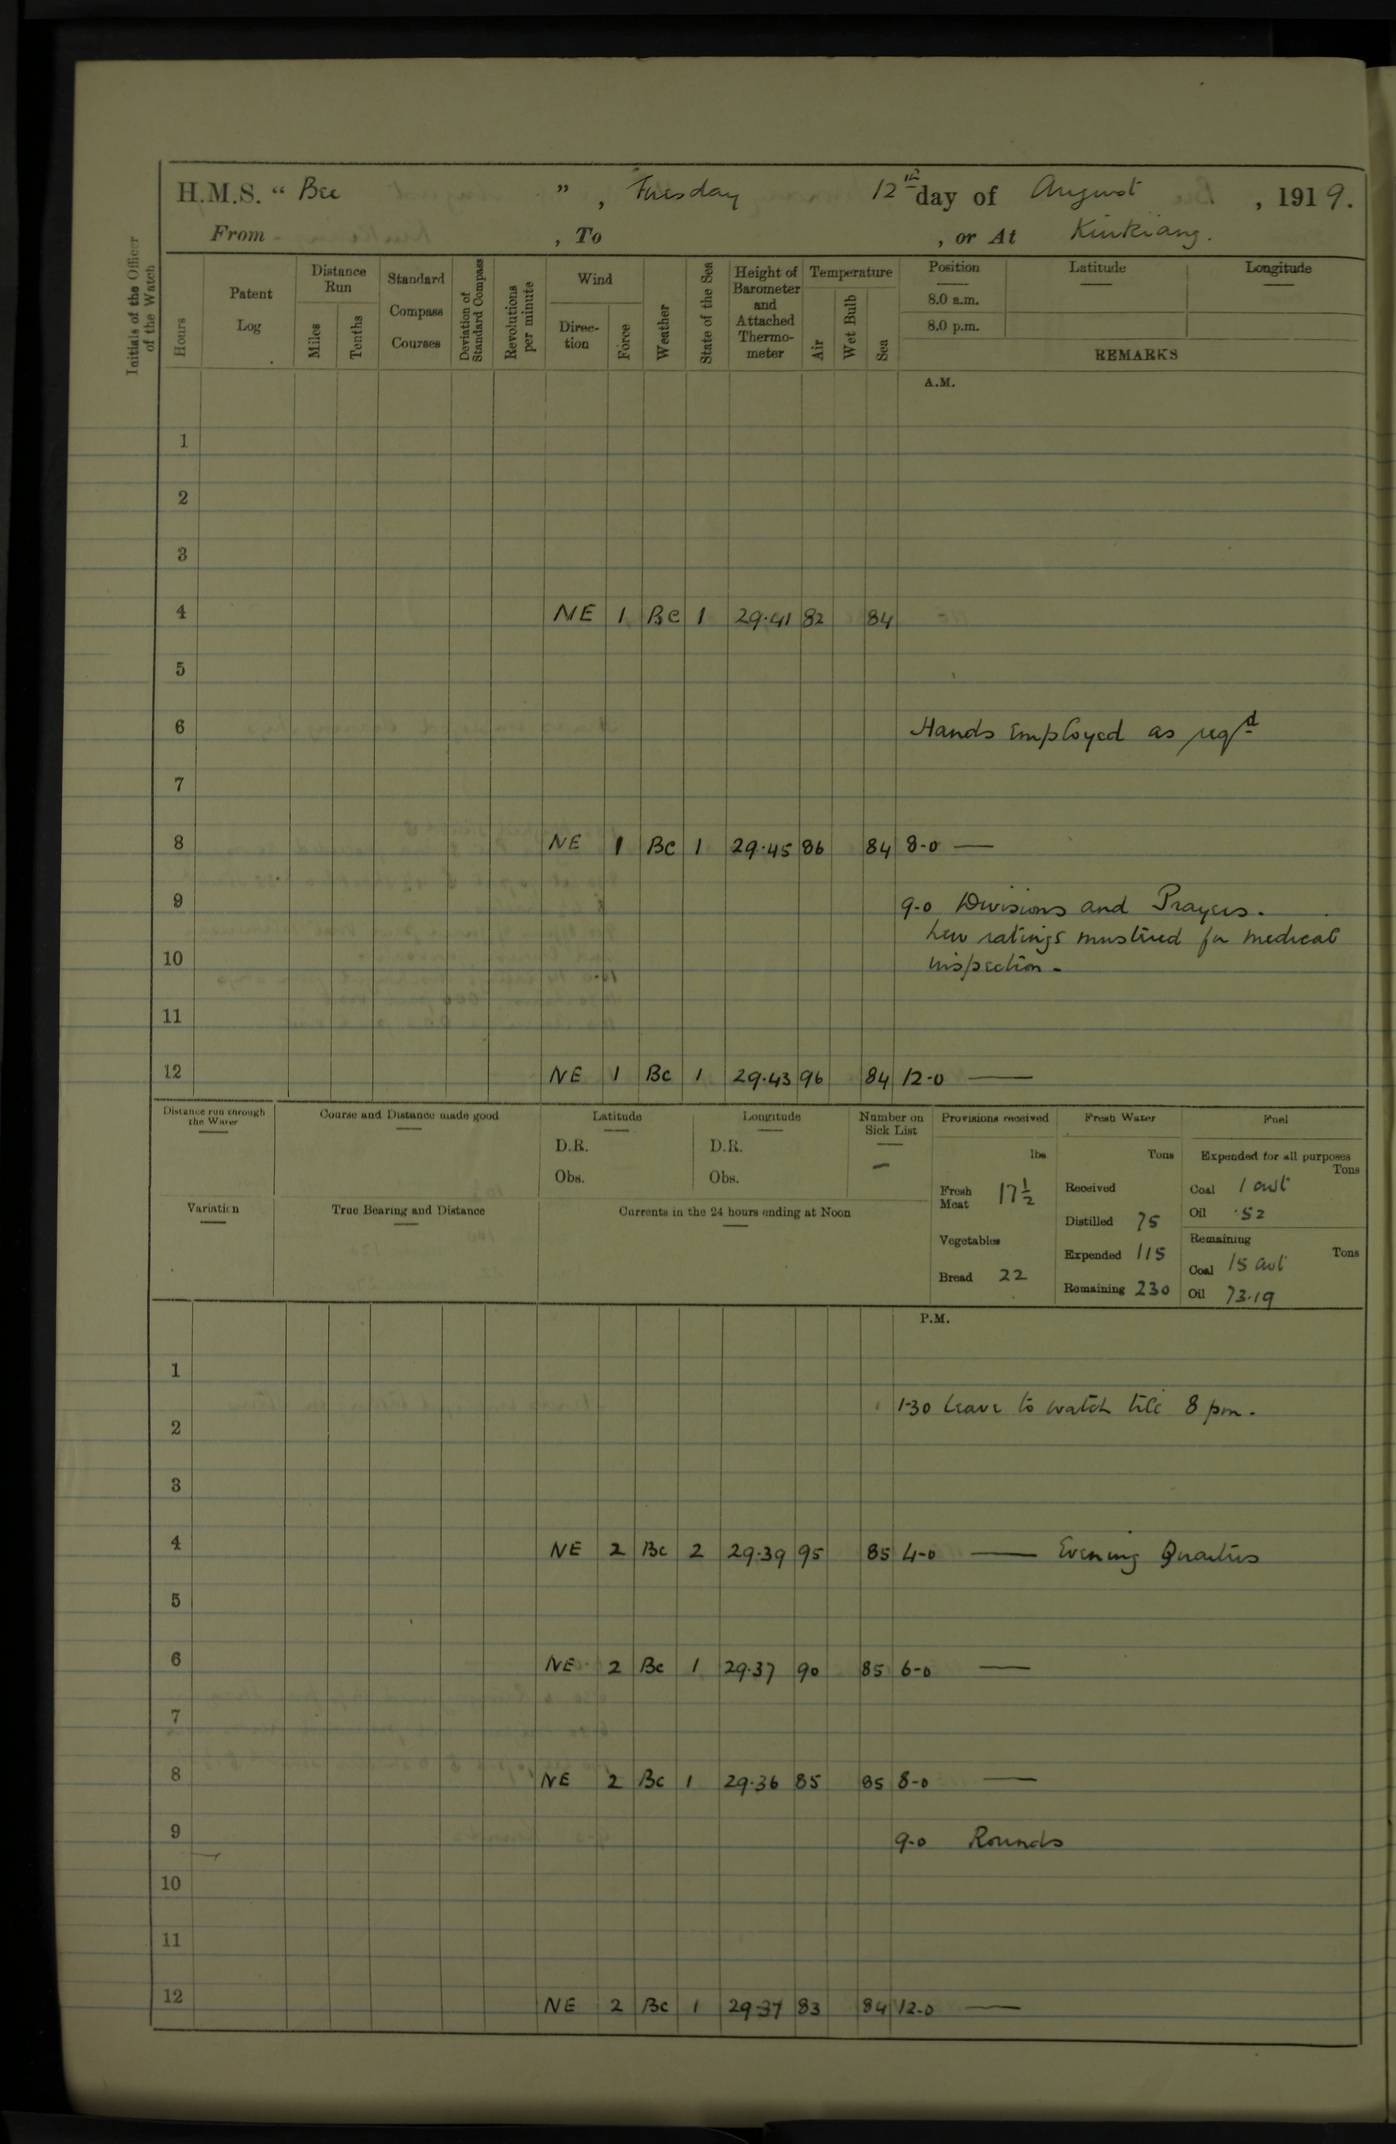 H.M.S. “ Bee ”, Tuesday 12th day of August, 1919.
From , To , or At Kiukiang.
Initials of the Officer of the Watch
Hours
Patent Log
Distance Run
Miles
Tenths
Standard Compass Courses
Deviation of Standard Compass
Revolutions per minute
Wind
Direc-tion
Force
Weather
State of the Sea
Height of Barometer and Attached Thermo-meter
Temperature
Air
Wet Bulb
Sea
Position
8.0 a.m.
8.0 p.m.
Latitude
Longitude
REMARKS
A.M.
1
2
3
4 NE 1 BC 1 29.41 82 84
5
6 Hands employed as reqd
7
8 NE 1 BC 1 29.45 86 84 8-0 —
9 9-0 Divisions and Prayers.
New ratings mustered for medical
10 inspection -
11
12 NE 1 Bc 1 29.43 96 84 12-0 —
Distance run through the Water
Course and Distance made good
Latitude
D.R.
Obs.
Longitude
D.R.
Obs.
Number on Sick List
—
Provisions received
lbs
Fresh Meat 17 1/2
Vegetables
Bread 22
Fresh Water
Tons
Received
Distilled 75
Expended 115
Remaining 230
Fuel
Expended for all purposes
Tons
Coal 1 cwt
Oil .52
Remaining
Tons
Coal 15 cwt
Oil 73.19
Variation
True Bearing and Distance
Currents in the 24 hours ending at Noon
P.M.
1
1-30 Leave to watch till 8 pm.
2
3
4 NE 2 Bc 2 29.39 95 85 4-0 — Evening Quarters
5
6 NE 2 Bc 1 29.37 90 85 6-0 —
7
8 NE 2 Bc 1 29.36 85 85 8-0 —
9 9-0 Rounds
10
11
12 NE 2 Bc 1 29.37 83 84 12-0 —